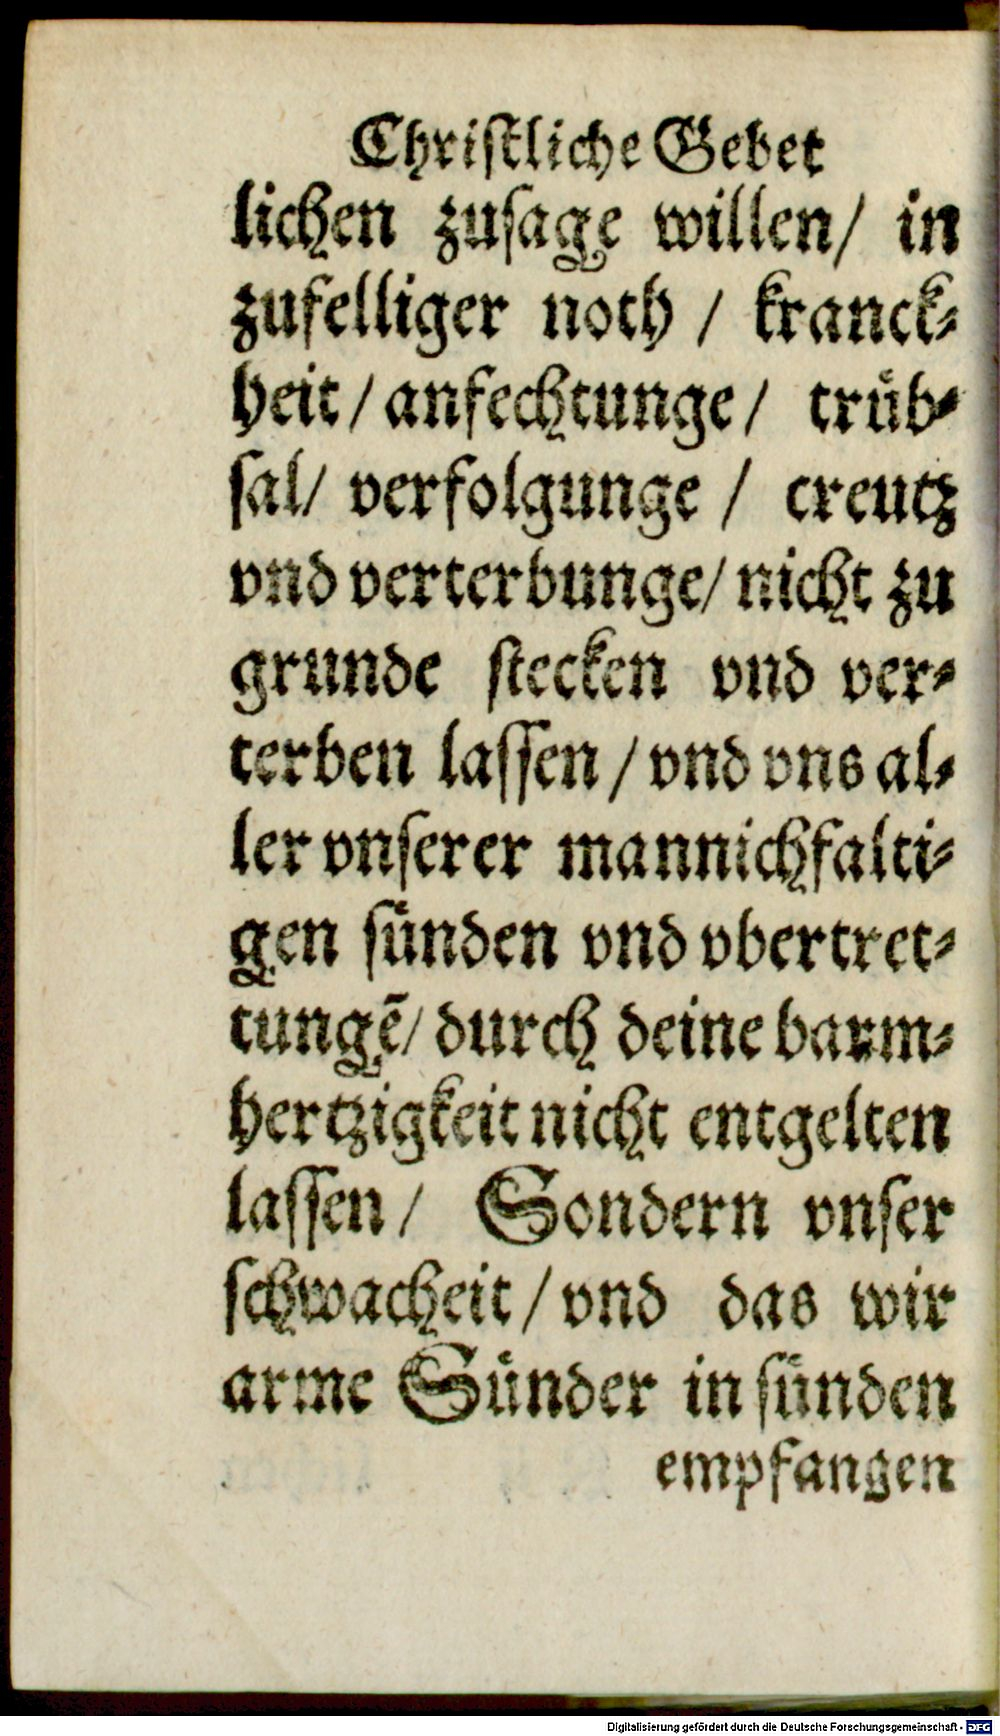 Chriſtliche Gebet
lichen zuſage willen/ in
zufelliger noth / kranck⸗
heit / anfechtunge / truͤb⸗
ſal/ verfolgunge / creutz
vnd verterbunge/ nicht zu
grunde ſtecken vnd ver⸗
terben laſſen / vnd vns al⸗
ler vnſerer mannichfalti⸗
gen ſuͤnden vnd vbertret⸗
tungẽ/ durch deine barm⸗
hertzigkeit nicht entgelten
laſſen / Sondern vnſer
ſchwacheit / vnd das wir
arme Suͤnder in ſuͤnden
empfangen
Digitalisierung gefördert durch die Deutsche Forschungsgemeinschaft - DFG